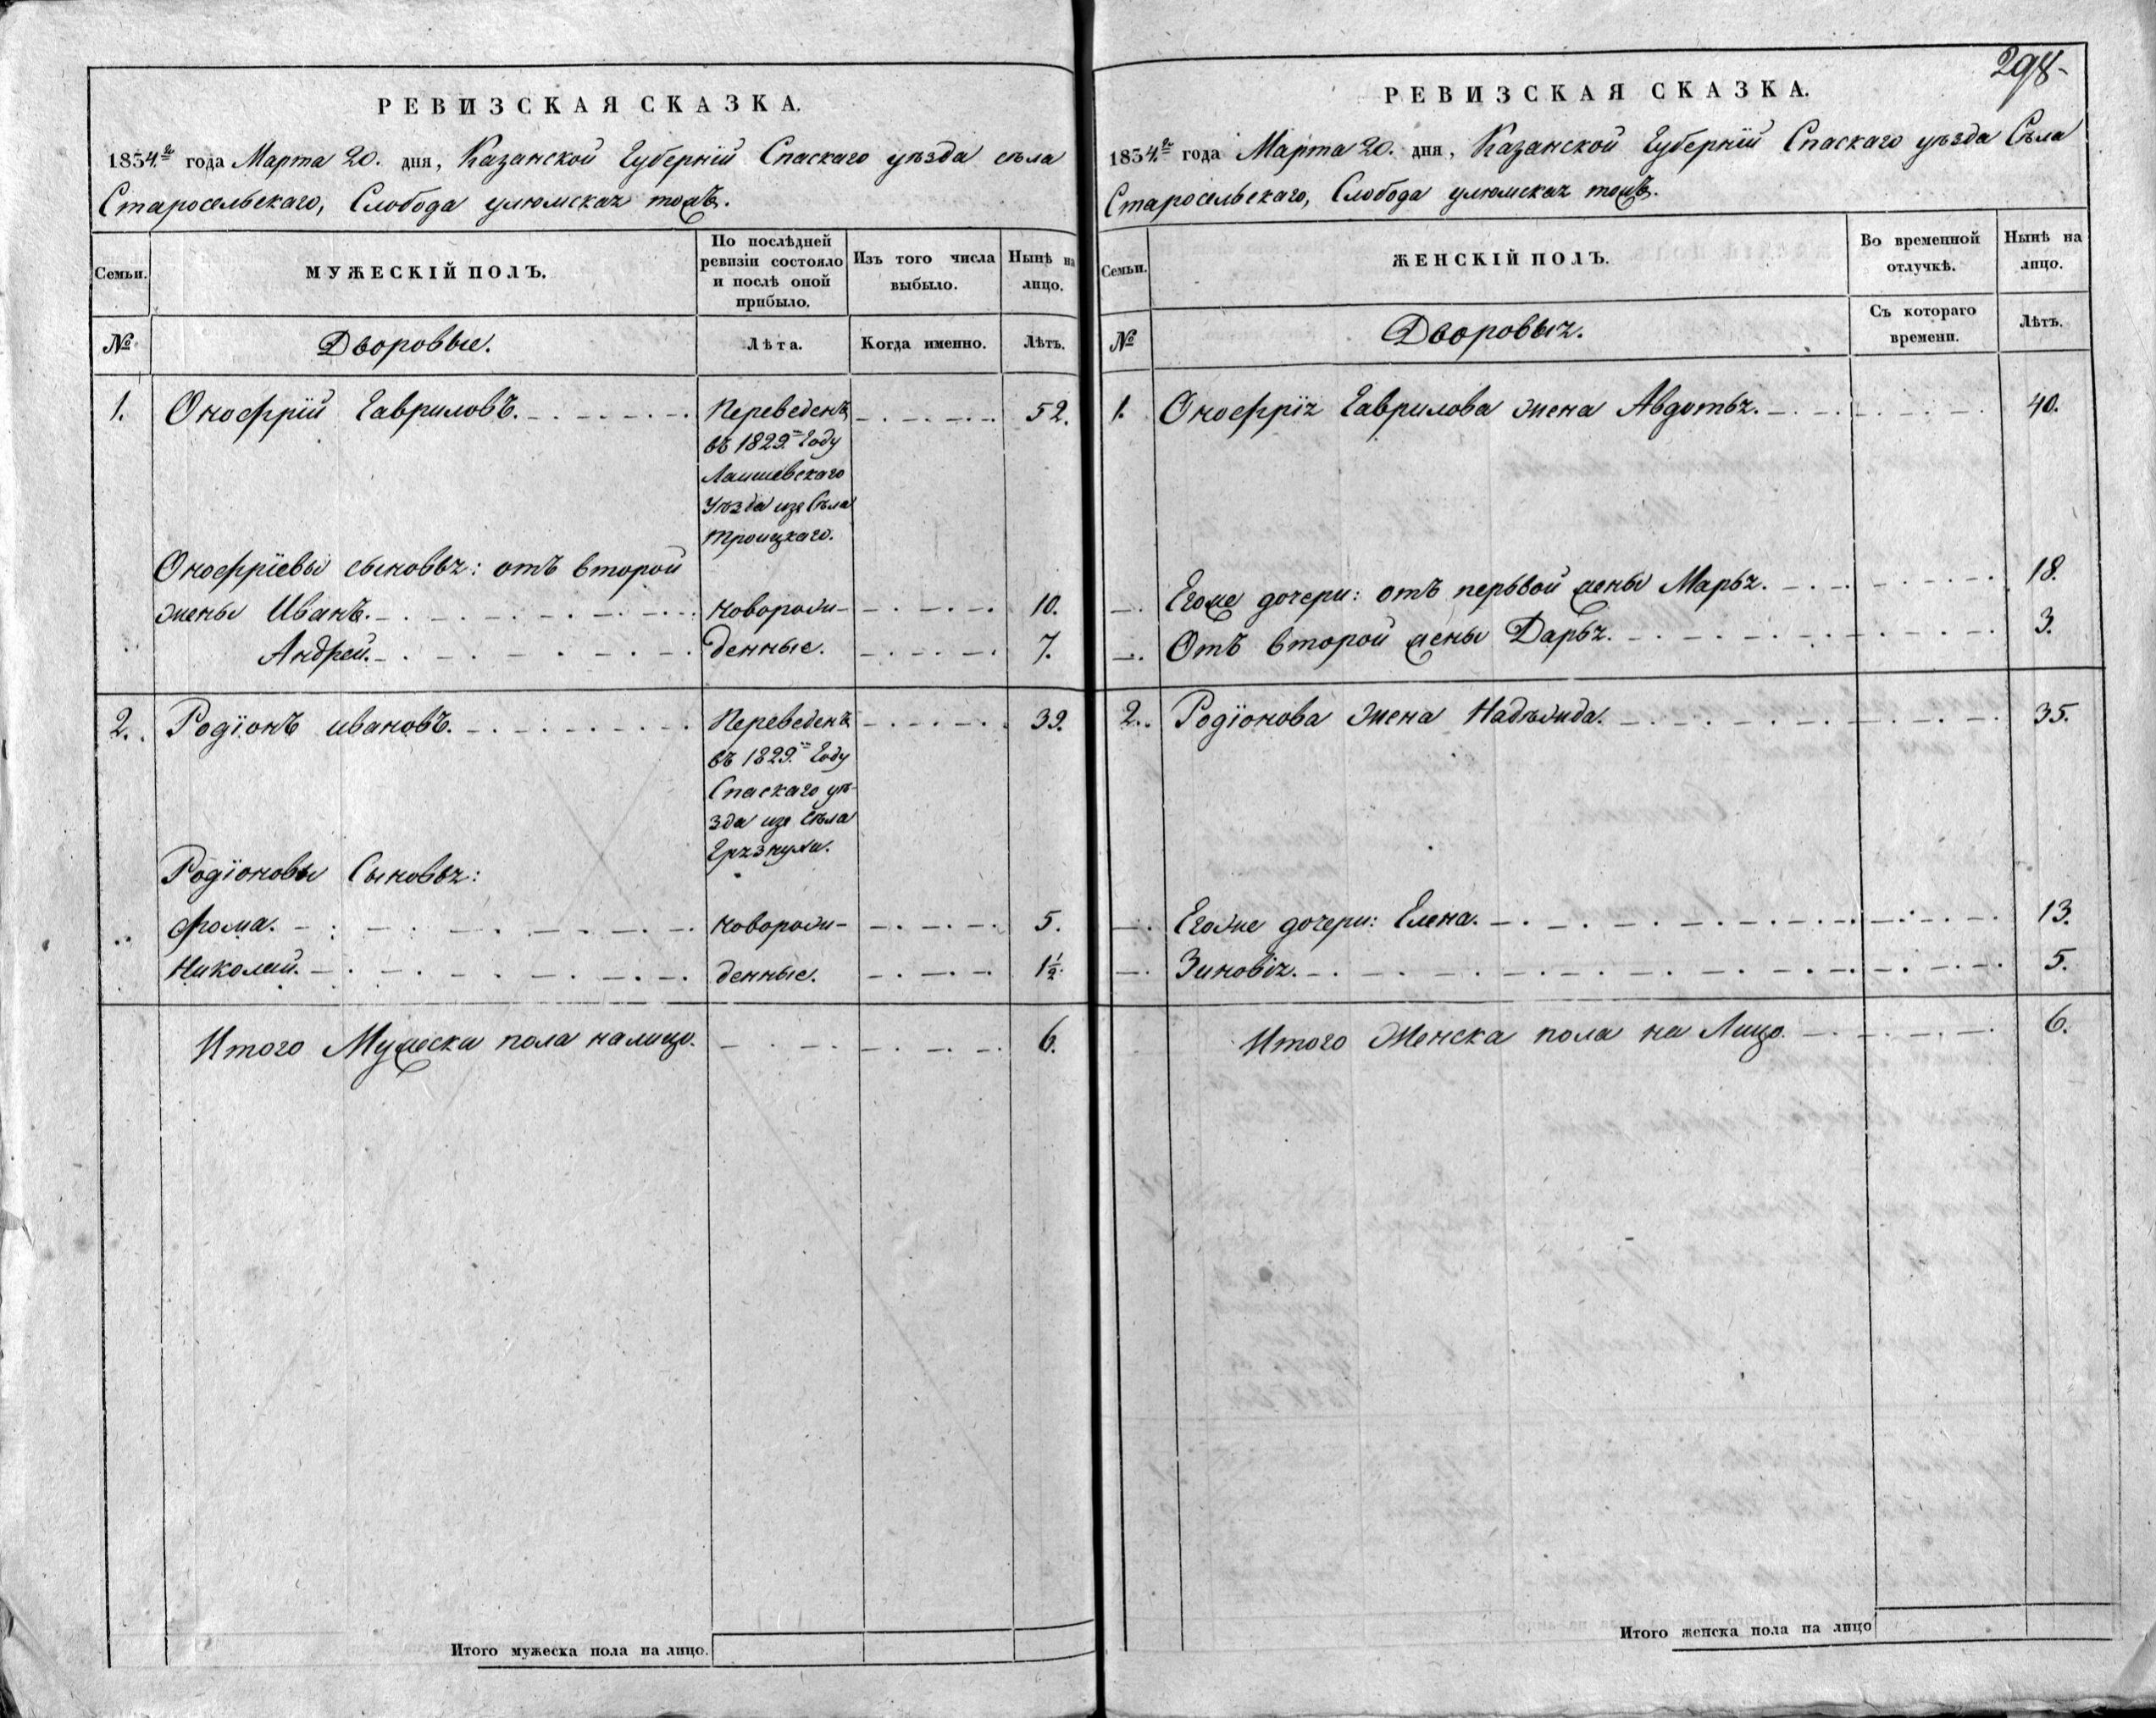 298
РЕВИЗСКАЯ СКАЗКА.
1834.го года Марта 20. дня, Казанской Губернїй Спаскаго уѣзда сѣла
Старосельскаго, Слобода улюмская тожъ.
Семьи.
МУЖЕСКІЙ ПОЛЪ.
По послѣдней ревизіи состояло и послѣ оной прибыло.
Изъ того числа выбыло.
Нынѣ на лицо.
№
Дворовые.
Лѣта.
Когда именно.
Лѣтъ.
1. Онофрїй Гавриловъ. Переведенъ 52.
въ 1829.м Году
Лаишевскаго
Уѣзда изъ Сѣла
Троицкаго.
Онофрїевы сыновья: отъ второй
жены Иванъ. новорож- 10.
Андрей. денные. 7.
2. Родїонъ ивановъ. Переведенъ 39.
въ 1829.м Году
Спаскаго уѣ-
зда изъ Сѣла
Родїоновы Сыновья:
Фома. новорож- 5.
Николай. денные. 1½.
Итого Мужеска пола налицо. 6.
Итого мужеска пола на лицо.
РЕВИЗСКАЯ СКАЗКА.
1834.го года Марта 20. дня, Казанской Губернїй Спаскаго уѣзда Сѣла
Старосельскаго, Слобода улюмская тожъ.
Семьи.
ЖЕНСКІЙ ПОЛЪ.
Во временной отлучкѣ.
Нынѣ на лицо.
№
Дворовыя.
Съ котораго времени.
Лѣтъ.
1. Онофрїя Гаврилова жена Авдотья. 40.
Егоже дочери: отъ первой жены Марья. 18.
Отъ второй жены Дарья. 3.
2. Родїонова жена Надѣжда. 35.
Егоже дочери: Елена. 13.
Зиновїя. 5.
Итого Женска пола на Лицо. 6.
Итого женска пола на лицо